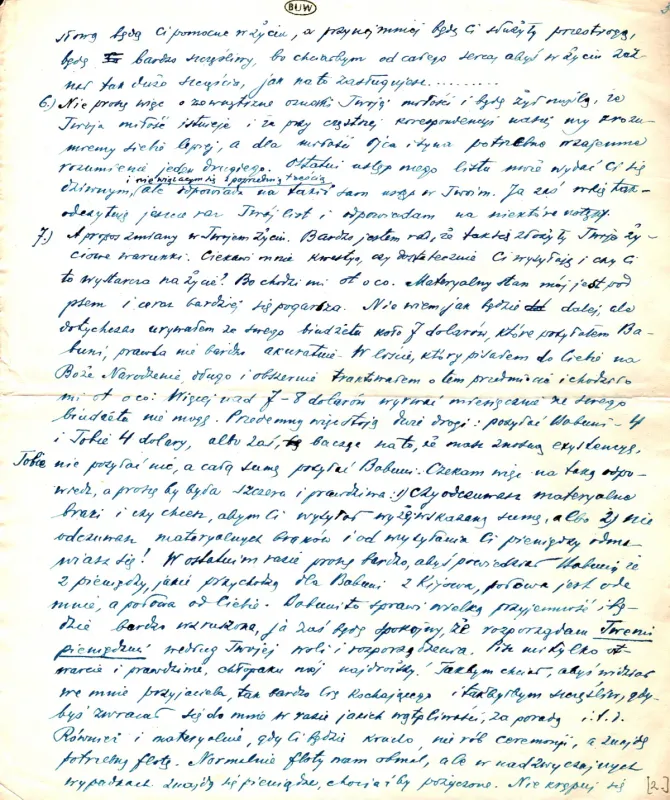 BUW
Nową będą Ci pomocne w życiu, a przynajmniej będą Ci służyły przestrogą,
będę bardzo szczęśliwy, bo chciałbym od całego serca, abyś w życiu zaz
nał tak dużo szczęścia, jak na to zasługujesz..........
6.) Nie proszę więc o zewnętrzne oznaki Twojej miłości i będę żył myślą, że
Twoja miłość istnieje i że przy częstszej korespondencji naszej my zrozu-
miemy siebie lepiej, a dla miłości Ojca i syna potrzebne wzajemne
rozumienie jeden drugiego. Ostatni ustęp mego listu może wydać Ci się
i nie wiążącym się z poprzednią treścią
dziwnym, ale odpowiada na takiż sam ustęp w Twoim. Ja zaś
odczytuję jeszcze raz Twój list i odpowiadam na niektóre ustępy.
7.) A propos zmiany w Twojem życiu. Bardzo jestem rad, że tak się złożyły Twoje ży-
ciowe warunki. Ciekawi mnie kwestja, czy dostatecznie Ci wysyłają i czy Ci
to wystarcza na życie? Bo chodzi mi ot o co. Materyalny stan mój jest pod
psem i coraz bardziej się pogarsza. Nie wiem jak będzie dalej, ale
dotychczas urywałem ze swego biudżetu koło 7 dolarów, które posyłałem Ba-
buni, prawda nie bardzo akuratnie. W liście, który pisałem do Ciebie na
Boże Narodzenie, długo i obszernie traktowałem o tem przedmiocie i chodziło
mi ot o co: Więcej nad 7-8 dolarów wyrwać miesięcznie ze swego
biudżetu nie mogę. Przedemną więc stoją dwie drogi: posyłać Babuni - 4
i Tobie 4 dolary, albo zaś, bacząc na to, że masz znośną egzystencyę,
Tobie nie posyłać nic, a całą sumę posyłać Babuni. Czekam więc na taką odpo-
wiedź, a proszę by była szczera i prawdziwa: 1) Czy odczuwasz materyalne
braki i czy chcesz, abym Ci wysyłał wyżej wskazaną sumę, albo 2) nie
odczuwasz materyalnych braków i od wysyłania Ci pieniędzy odma-
wiasz się! W ostatnim razie proszę bardzo, abyś powiedział Babuni, że
z pieniędzy, jakie przychodzą dla Babuni z Kijowa, połowa jest ode
mnie, a połowa od Ciebie. Babuni to sprawi wielką przyjemność i bę-
dzie bardzo wzruszona, ja zaś będę spokojny, że rozporządzam Twemi
pieniędzmi według Twojej woli i rozporządzenia. Pisz mi tylko ot-
warcie i prawdziwie, chłopaku mój najdroższy! Takbym chciał, abyś widział
we mnie przyjaciela, tak bardzo Cię kochającego i takbyłbym szczęśliwy, gdy-
byś zwracał się do mnie w razie jakich wątpliwości, za poradą i t. d.
Również i materyalnie, gdy Ci będzie krucho, nie rób ceremonji, a znajdę
potrzebną flotę. Normalnie floty nam obmal, ale w nadzwyczajnych
wypadkach znajdą się pieniądze, chociażby pożyczone. Nie krępuj się
[2.]